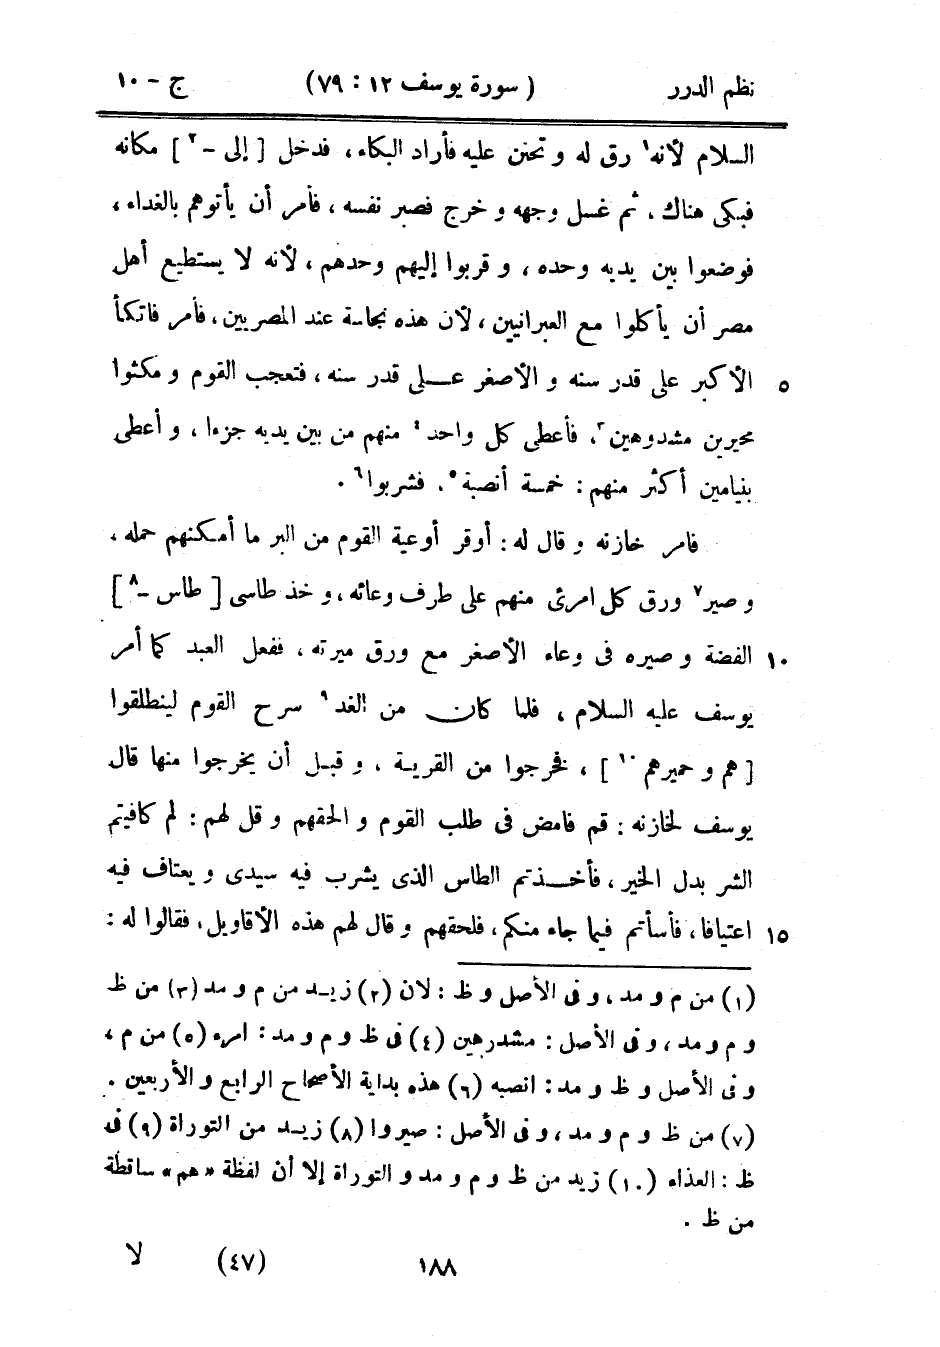 نظم الدرر ( سورة يوسف ١٢ : ٧٩ ) ج - ١٠
السلام لأنه١ رق له و تحنن عليه فأراد البكاء، فدخل [ إلى -٢ ] مكانه
فبكى هناك، ثم غسل وجهه و خرج فصبر نفسه، فأمر أن يأتوهم بالغداء،
فوضعوا بين يديه وحده، و قربوا إليهم وحدهم، لأنه لا يستطيع أهل
مصر أن يأكلوا مع العبرانيين، لأن هذه نجاسة عند المصريين، فأمر فاتكأ
٥ الأكبر على قدر سنه و الأصغر على قدر سنه، فتعجب القوم و مكثوا
محيرين مشدوهين٣، فأعطى كل واحد٤ منهم من بين يديه جزءا، و أعطى
بنيامين أكثر منهم : خمسة أنصبة٥، فشربوا٦ .
فامر خازنه و قال له : أوقر أوعية القوم من البر ما أمكنهم حمله،
و صير٧ ورق كل امرئ منهم على طرف وعائه، و خذ طاسى [ طاس -٨ ]
١٠ الفضة و صيره فى وعاء الأصغر مع ورق ميرته، ففعل العبد كما أمر
يوسف عليه السلام، فلما كان من الغد٩ سرح القوم لينطلقوا
[ هم و حميرهم١٠ ]، فخرجوا من القرية، و قبل أن يخرجوا منها قال
يوسف لخازنه : قم فامض فى طلب القوم و الحقهم و قل لهم : لم كافيتم
الشر بدل الخير، فأخذتم الطاس الذى يشرب فيه سيدى و يعتاف فيه
١٥ اعتيافا، فأسأتم فيما جاء منكم، فلحقهم و قال لهم هذه الأقاويل، فقالوا له :
(١) من م و مد، و فى الأصل و ظ : لان (٢) زيد من م و مد (٣) من ظ
و م و مد، و فى الأصل : مشدرهين (٤) فى ظ و م و مد : امره (٥) من م،
و فى الأصل و ظ و مد : انصبه (٦) هذه بداية الأصحاح الرابع و الأربعين .
(٧) من ظ و م و مد، و فى الأصل : صيروا (٨) زيد من التوراة (٩) فى
ظ : العذاء (١٠) زيد من ظ و م و مد و التوراة إلا أن لفظة « هم » ساقطة
من ظ .
١٨٨ (٤٧) لا